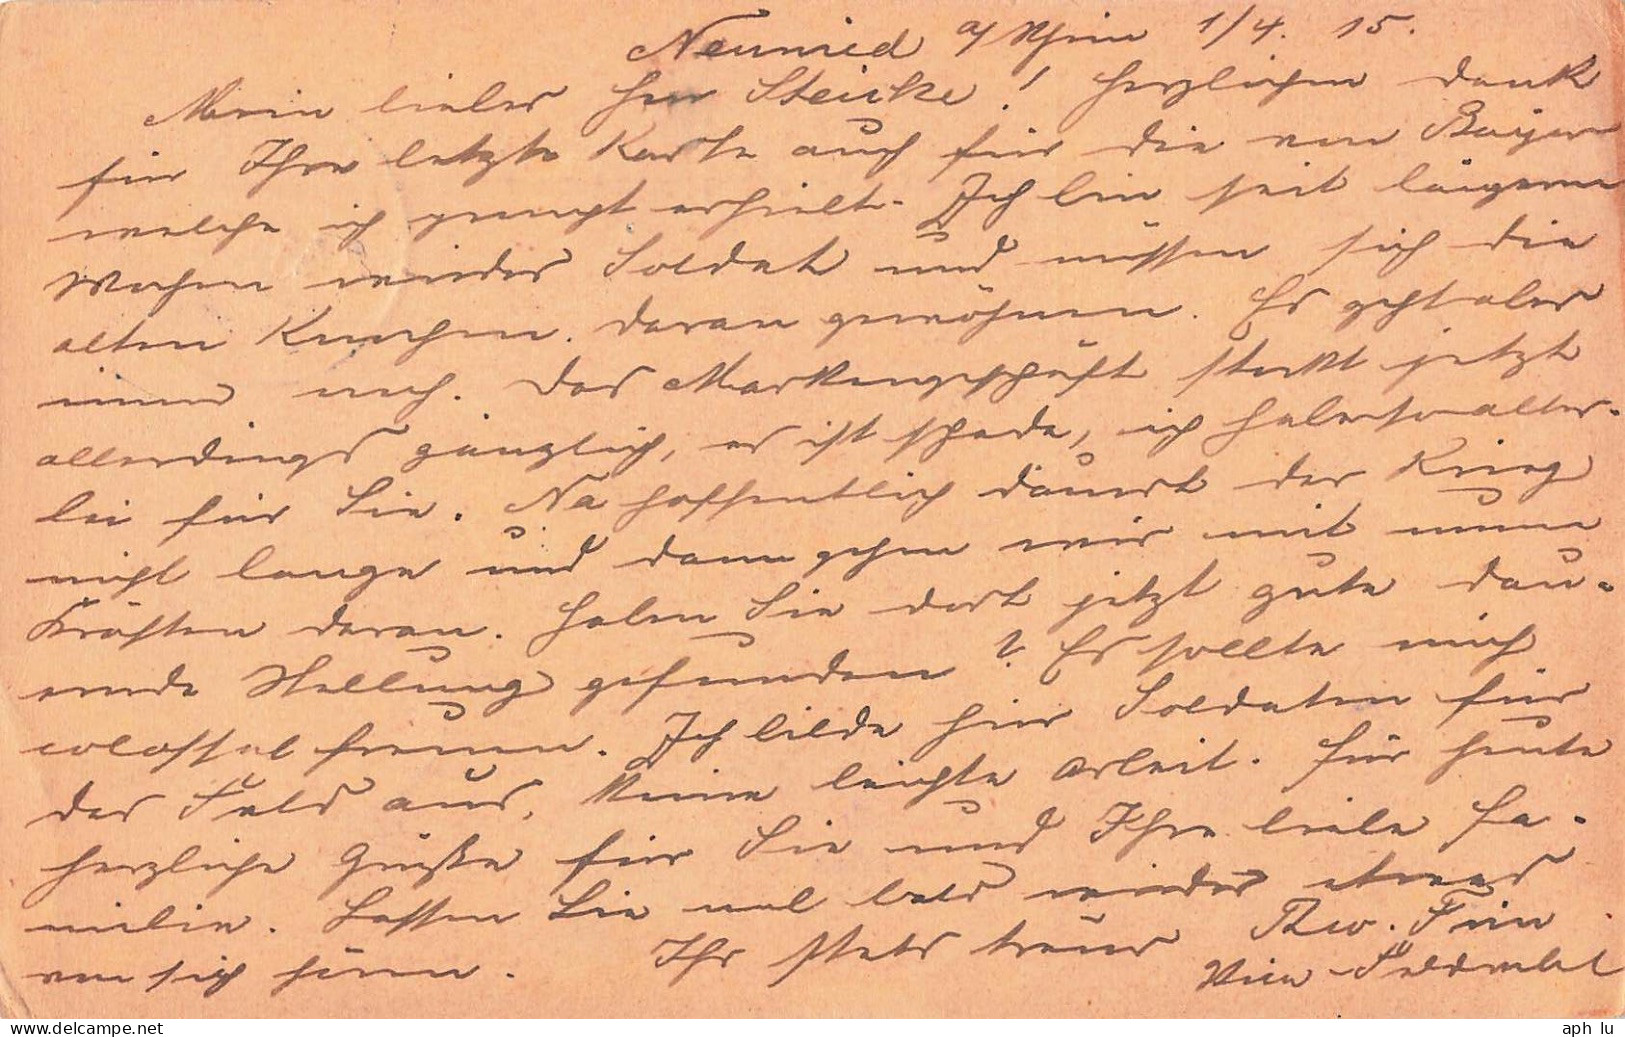 Neuwied a/Rhein 1/4. 15.
Mein lieber Herr Steicke! Herzlichen Dank
für Ihre letzte Karte auch für die von Bayern
welche ich prompt erhielt. Ich bin seit längeren
Wochen wieder Soldat und müssen sich die
alten Knochen daran gewöhnen. Es geht aber
immer noch. Das Markengeschäft stockt jetzt
allerdings gänzlich, es ist schade, ich habe so aller-
lei für Sie. Na hoffentlich dauert der Krieg
nicht lange und dann gehen wir mit neuen
Kräften daran. Haben Sie dort jetzt gute dau-
ernde Stellung gefunden? Es sollte mich
colossal freuen. Ich bilde hier Soldaten für
das Feld aus, keine leichte Arbeit. Für heute
herzliche Grüße für Sie und Ihre liebe Fa-
milie. Lassen Sie mal bald wieder etwas
von sich hören. Ihr stets treuer
Vice-Feldwebel
aph lu